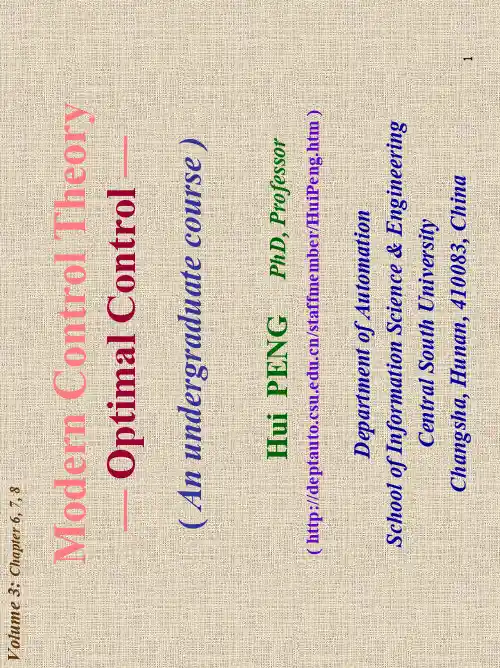 Volume 3: Chapter 6, 7, 8
Modern Control Theory
— Optimal Control —
( An undergraduate course )
Hui PENG PhD, Professor
( http://deptauto.csu.edu.cn/staffmember/HuiPeng.htm )
Department of Automation
School of Information Science & Engineering
Central South University
Changsha, Hunan, 410083, China
1